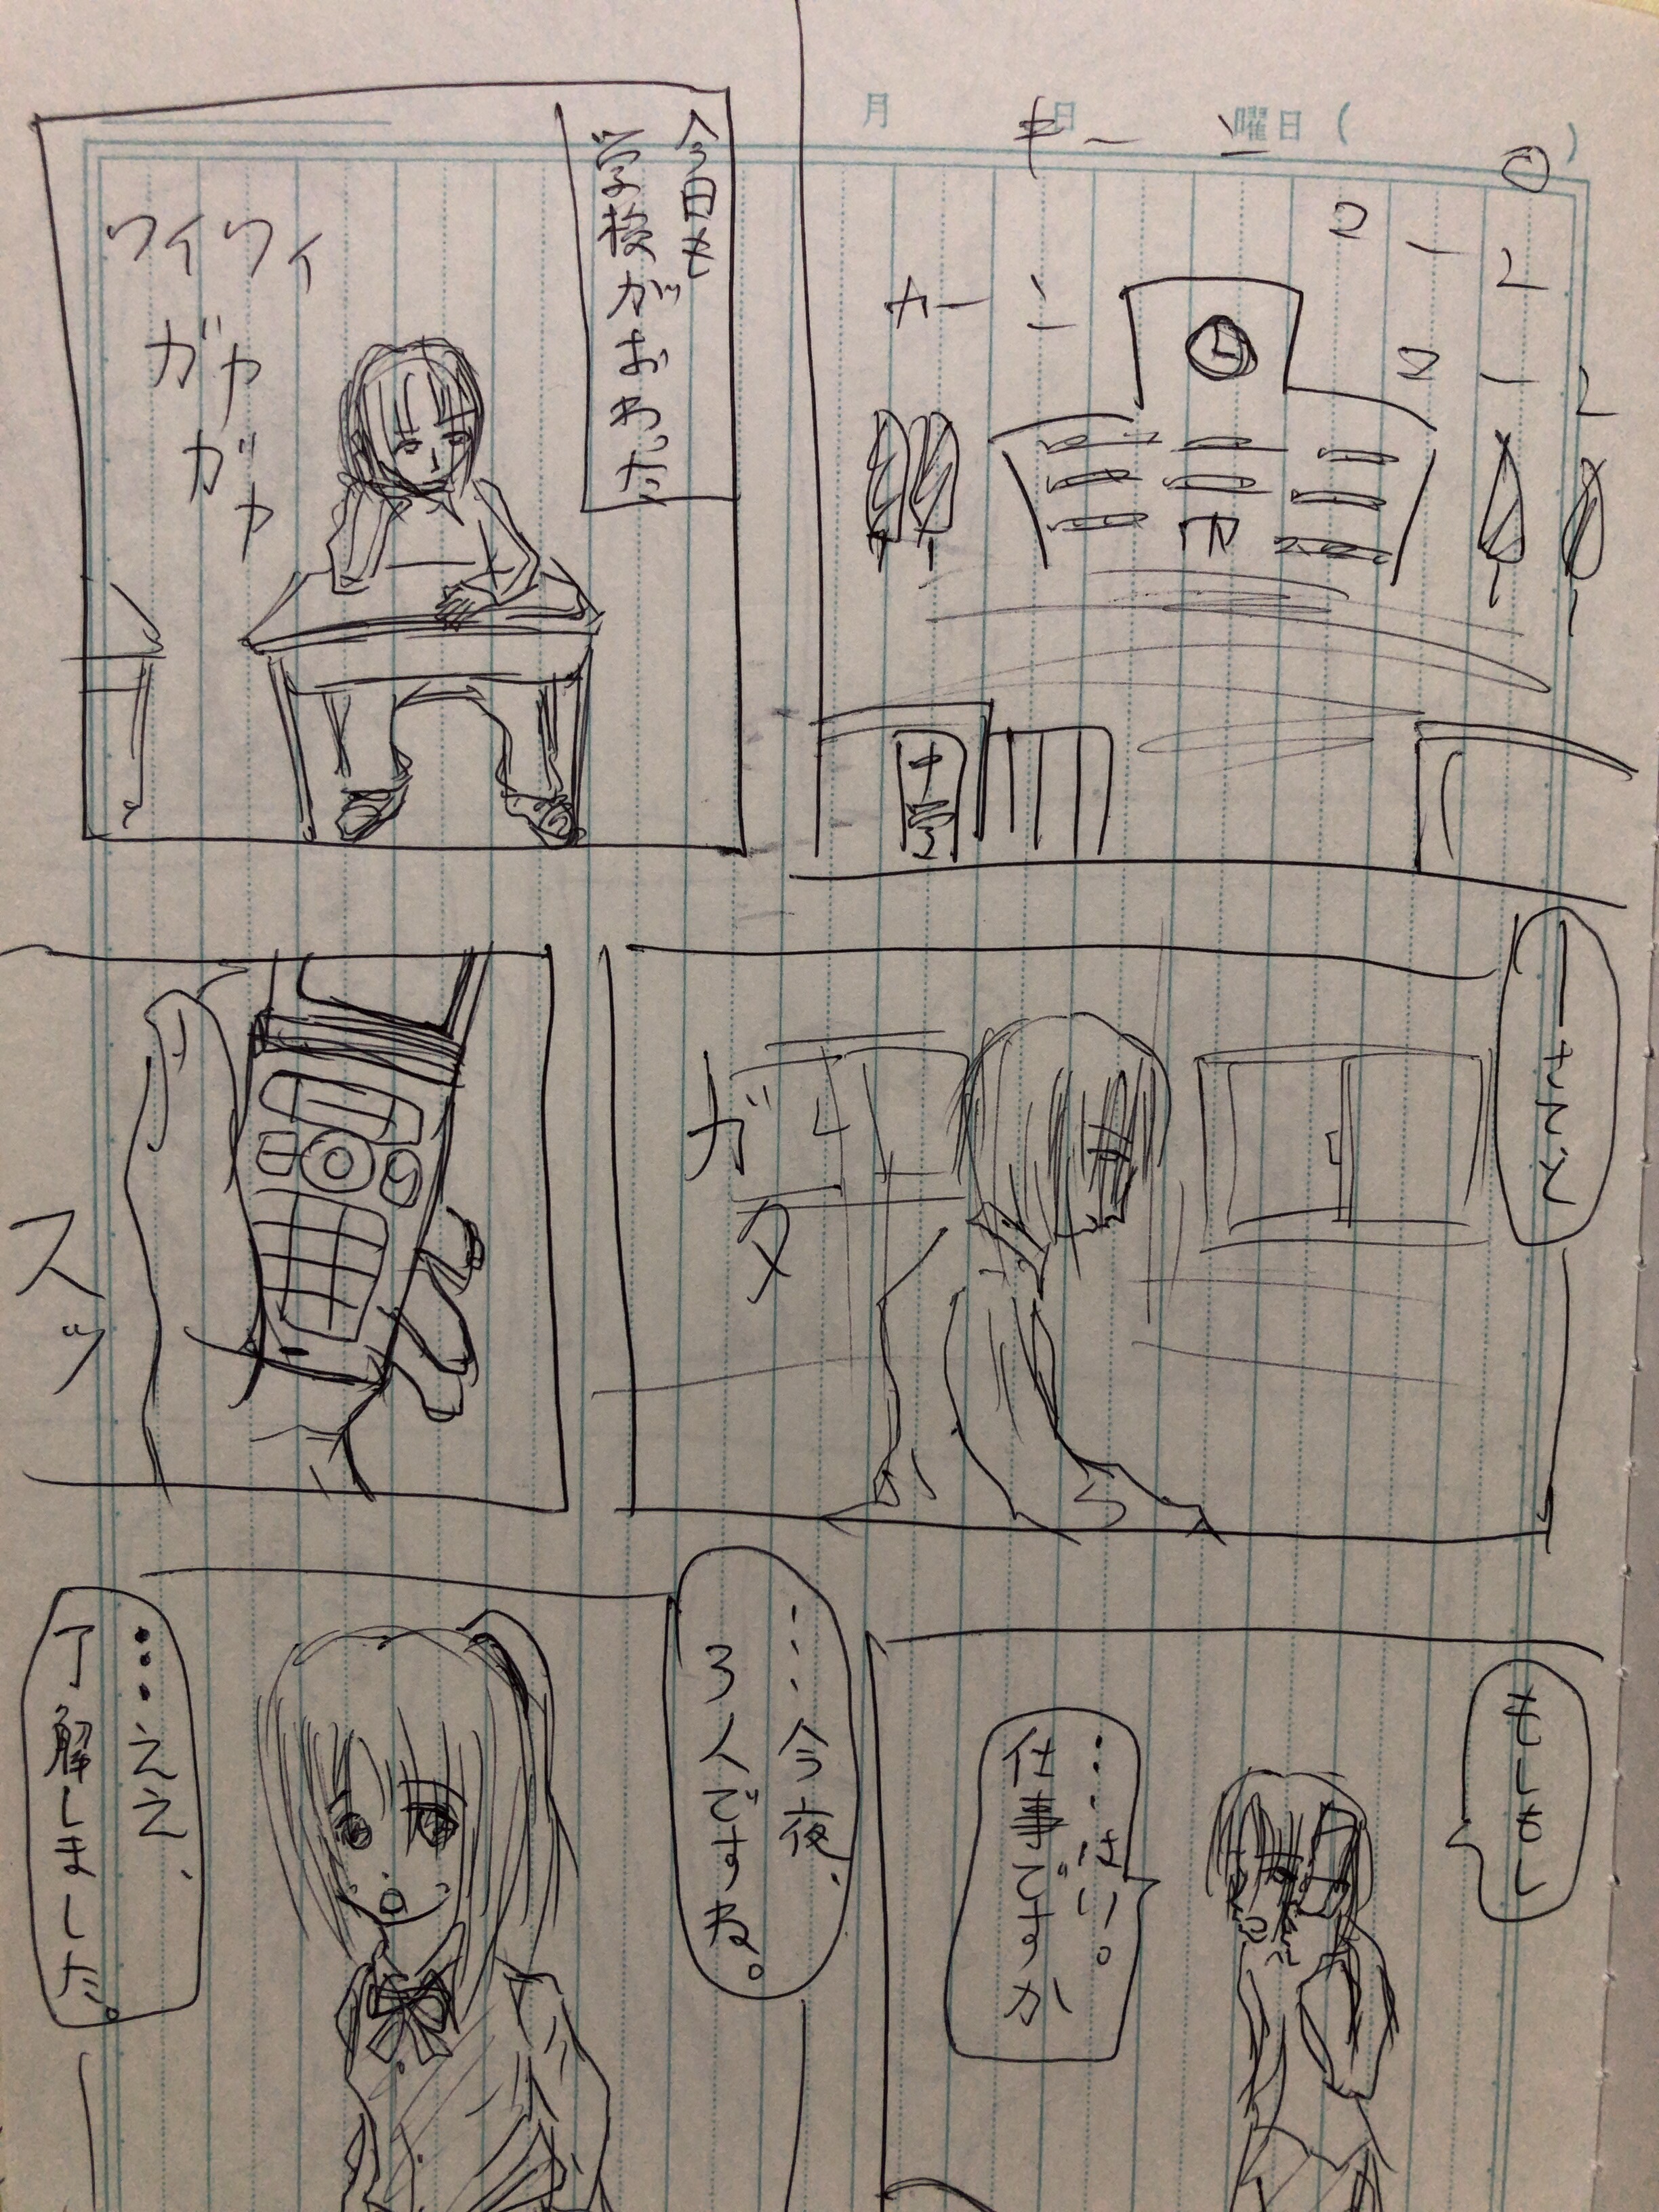 月 日 曜日( )
キーン
コーン
カーン
コーン
中学
今日も
学校がおわった
ワイワイ
ガヤ
ガヤ
ガタ
スッ
もしもし
…はい。
仕事ですか
…今夜、
3人ですね。
…ええ、
了解しました。